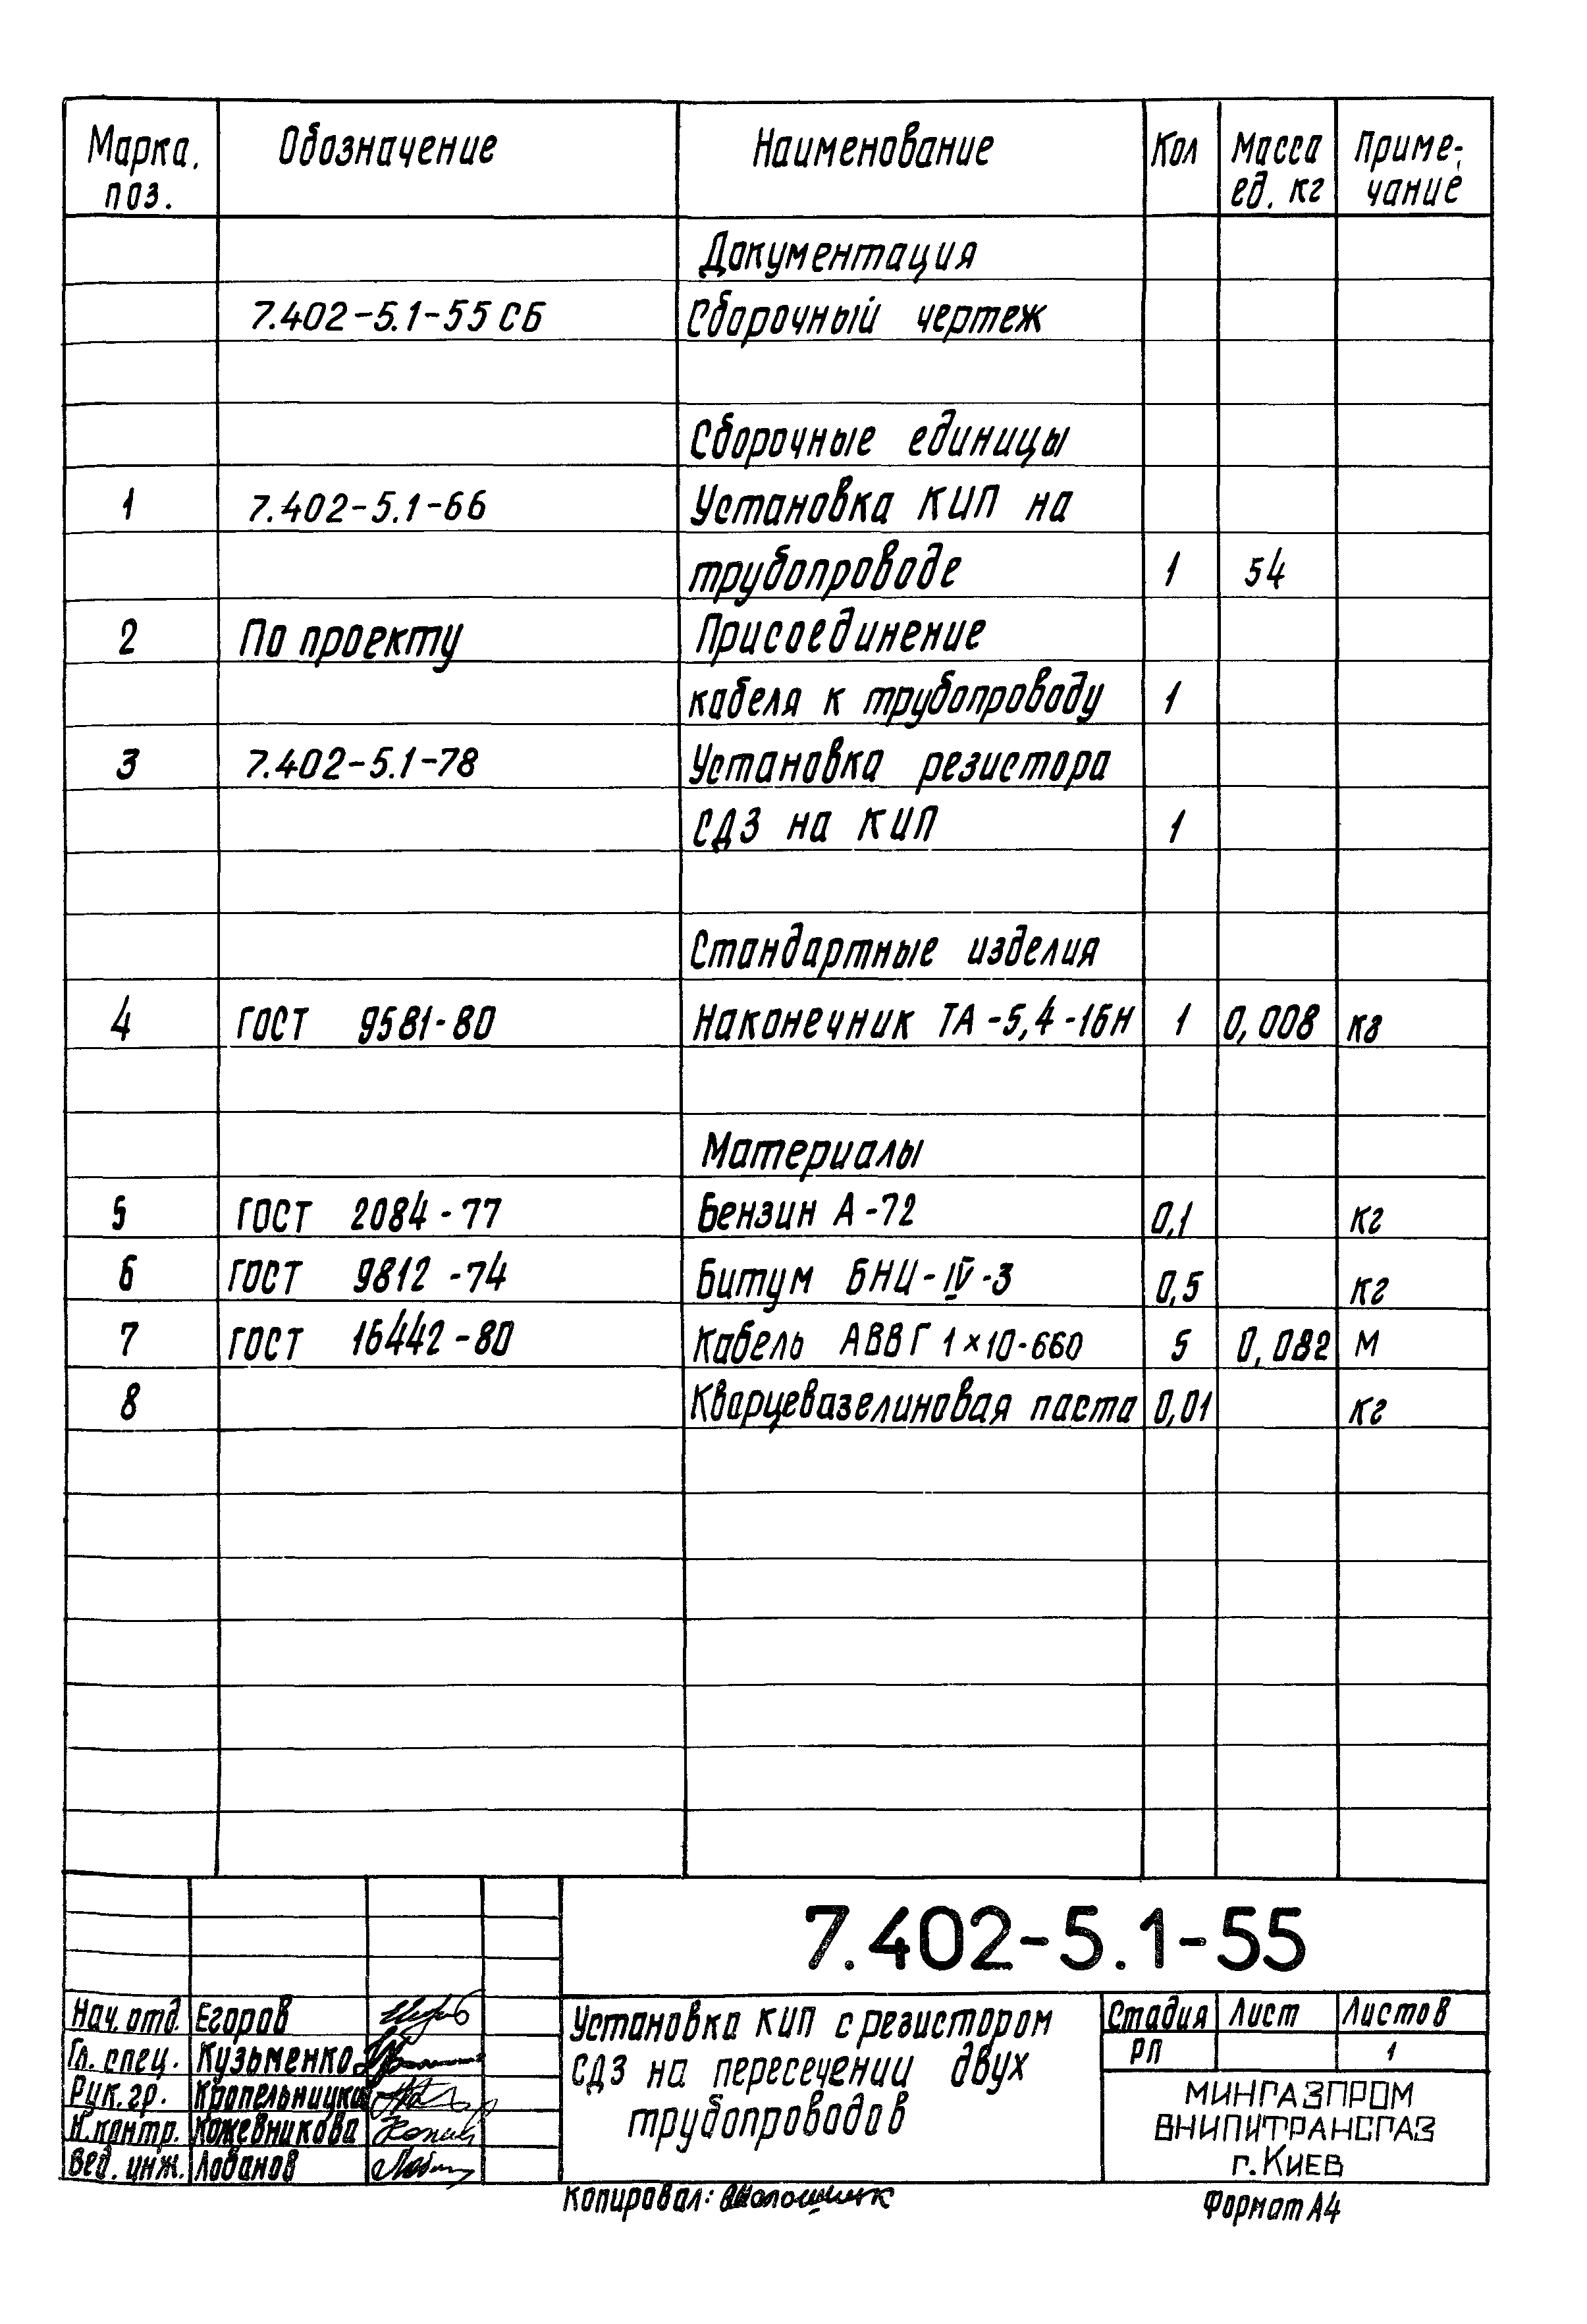 Марка. Обозначение Наименование Кол Масса Приме-
поз. ед. кг чание
Документация
7.402-5.1-55 СБ Сборочный чертеж
Сборочные единицы
1 7.402-5.1-66 Установка КИП на
трубопроводе 1 54
2 По проекту Присоединение
кабеля к трубопроводу 1
3 7.402-5.1-78 Установка резистора
СДЗ на КИП 1
Стандартные изделия
4 ГОСТ 9581-80 Наконечник ТА-5,4-16Н 1 0,008 кг
Материалы
5 ГОСТ 2084-77 Бензин А-72 0,1 кг
6 ГОСТ 9812-74 Битум БНИ-IV-3 0,5 кг
7 ГОСТ 16442-80 Кабель АВВГ 1×10-660 5 0,082 м
8 Кварцевазелиновая паста 0,01 кг
7.402-5.1-55
Нач. отд. Егоров
Гл. спец. Кузьменко
Рук. гр. Кропельницка
Н. контр. Кожевникова
Вед. инж. Лобанов
Установка КИП с резистором
СДЗ на пересечении двух
трубопроводов
Стадия Лист Листов
РП 1
МИНГАЗПРОМ
ВНИПИТРАНСГАЗ
г. Киев
Копировал:
Формат А4